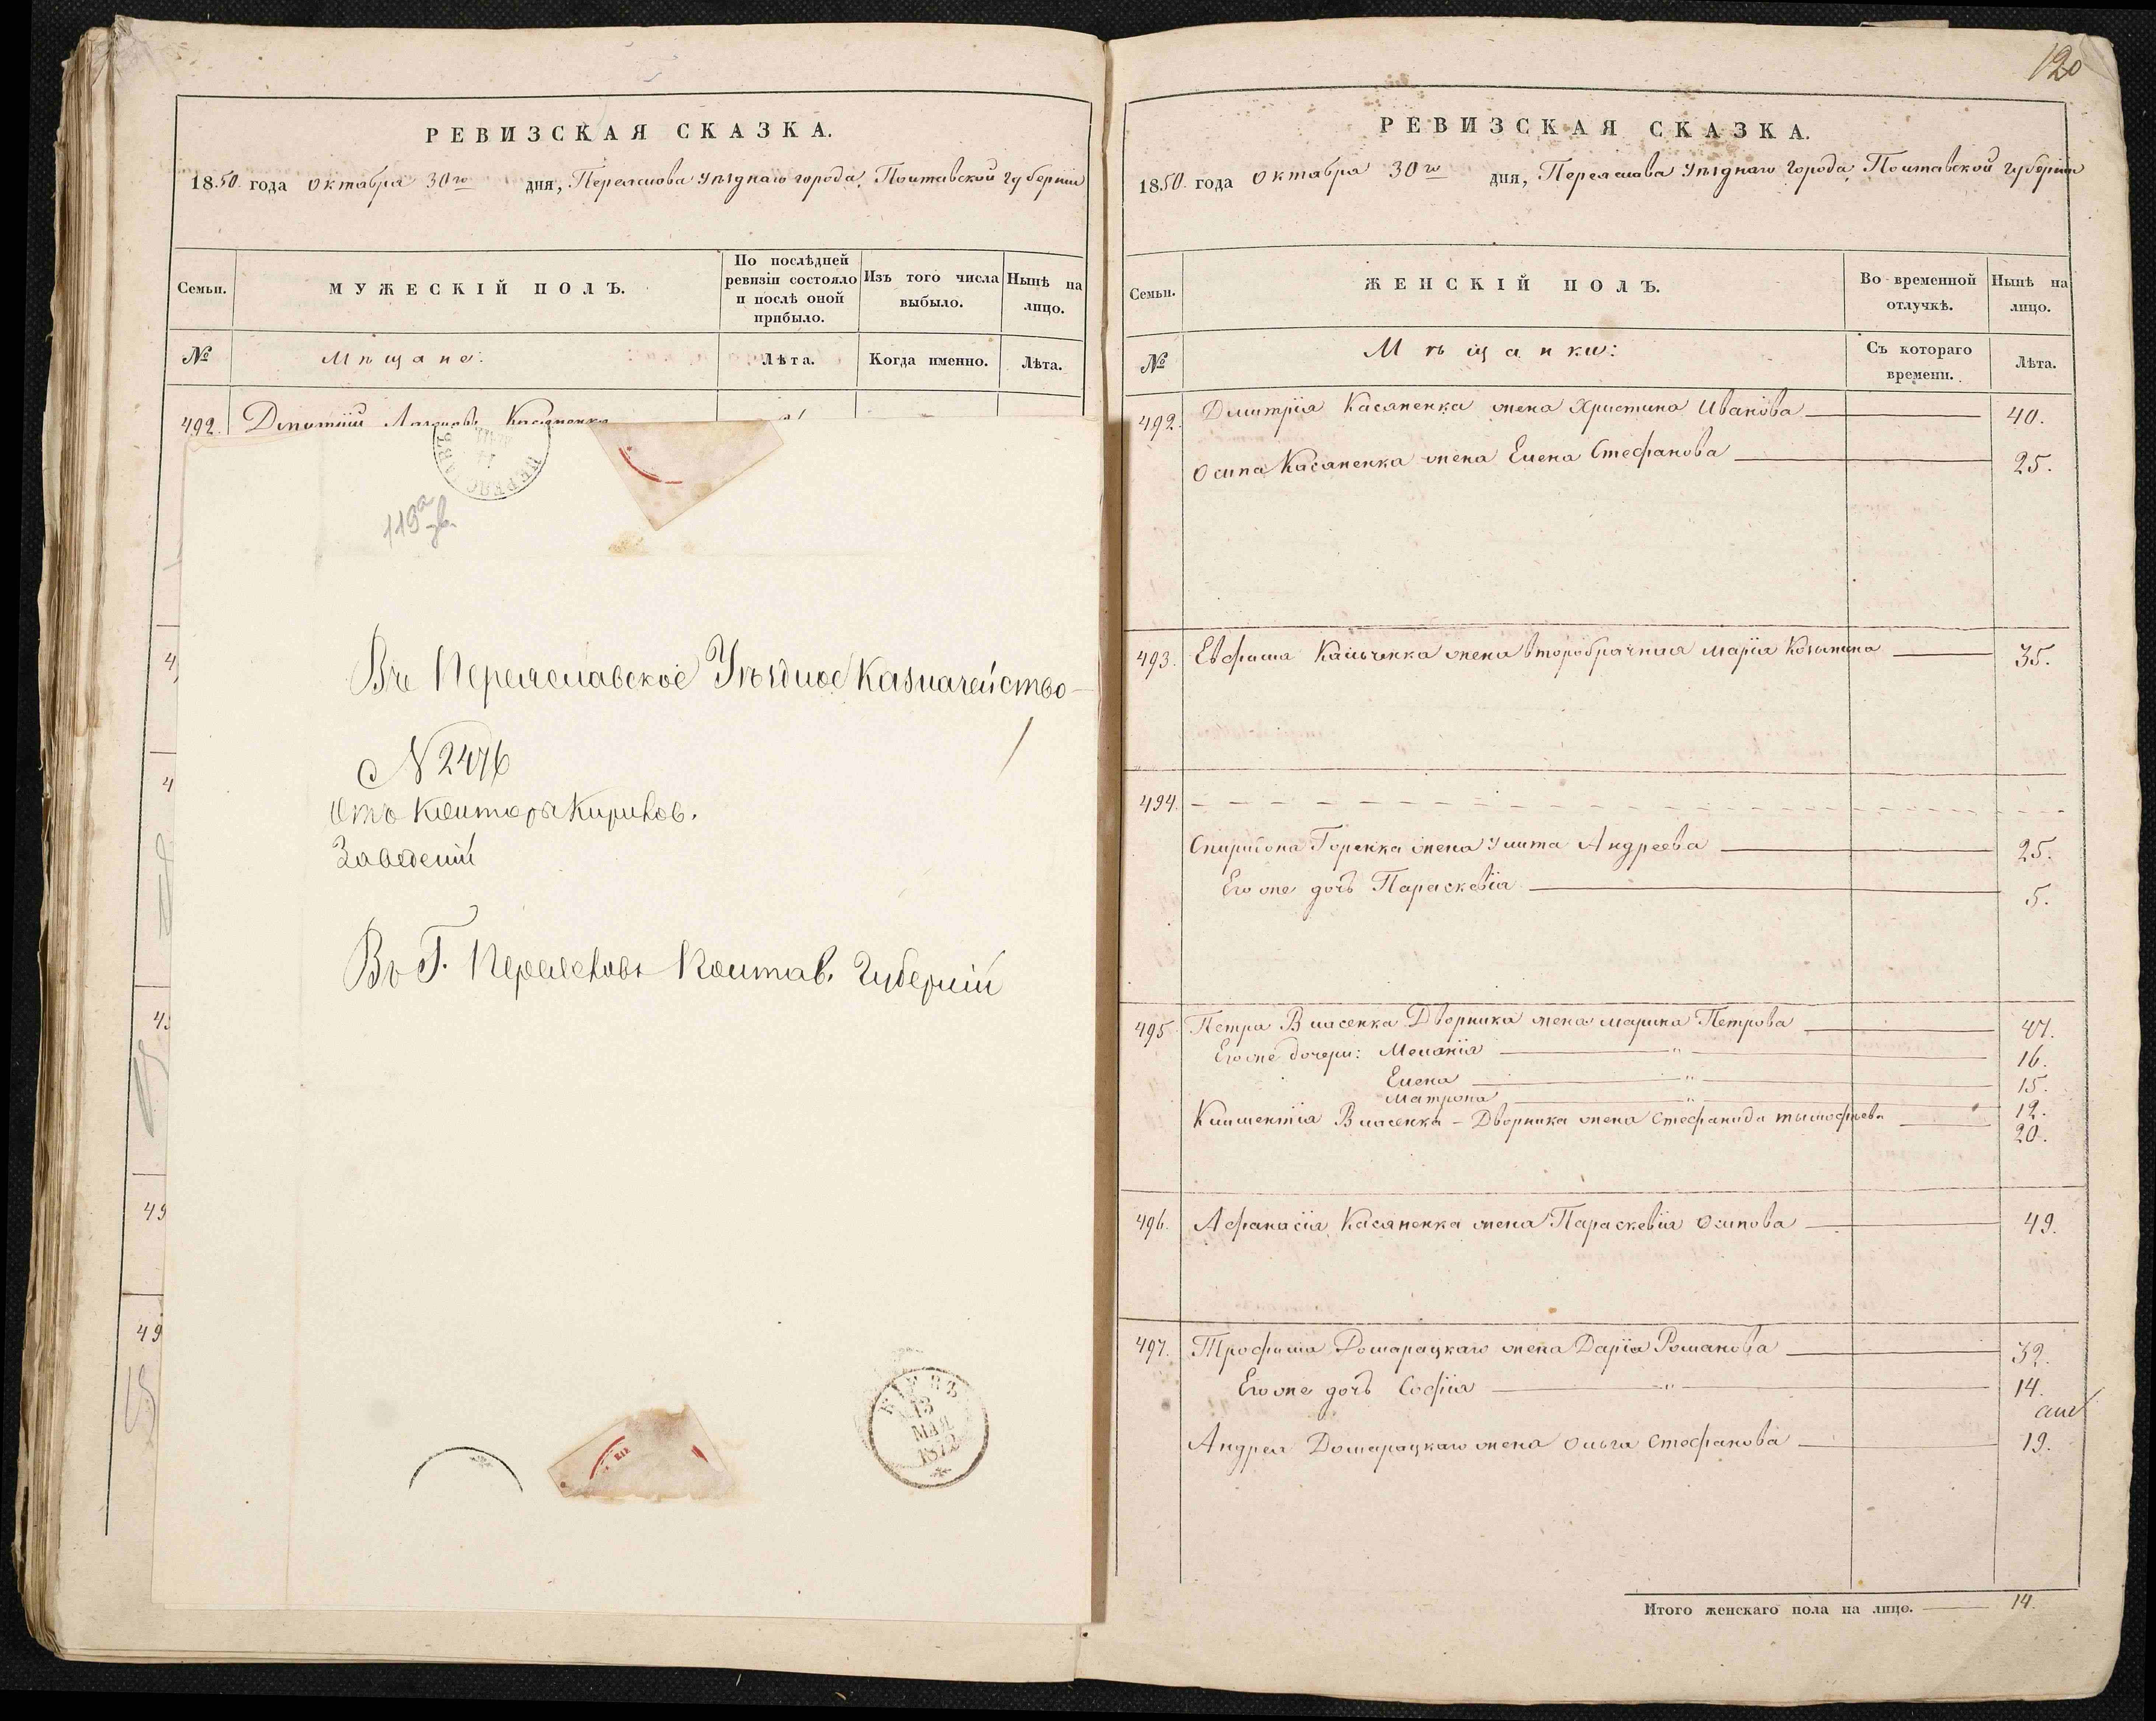 РЕВИЗСКАЯ СКАЗКА.
1850. года октября 30го дня, Переяслова уѣзднаго города, Полтавской губерніи
Семьи.
МУЖЕСКІЙ ПОЛЪ.
По послѣдней ревизіи состояло и послѣ оной прибыло.
Изъ того числа выбыло.
Нынѣ на лицо.
№
Мѣщане:
Лѣта.
Когда именно.
Лѣта.
492.
Касяненко
119а зв.
Въ Переяславское Уѣздное Казначейство
№ 2476
Отъ Конторы Кирилов.
Заведеній
Въ Г. Переяславъ Полтав. Губерніи
КІЕВЪ
13
МАЯ
1872
120
РЕВИЗСКАЯ СКАЗКА.
1850. года октября 30го дня, Переяслава уѣзднаго города, Полтавской губерніи
Семьи.
ЖЕНСКІЙ ПОЛЪ.
Во временной отлучкѣ.
Нынѣ на лицо.
№
Мѣщанки:
Съ котораго времени.
Лѣта.
492. Дмитрія Касяненка жена Христина Иванова 40.
Осипа Касяненка жена Елена Стефанова 25.
493. Евфима Кальченка жена второбрачная Марія Козьмина 35.
494.
Спиридона Горенка жена Улита Андреева 25.
Его же дочь Параскевія 5.
495. Петра Власенка Дворника жена Марина Петрова 47.
Его же дочери: Меланія " 16.
Елена " 15.
Матрона " 12.
Климентія Власенка-Дворника жена Стефанида Тымофѣева 20.
496. Афанасія Касяненка жена Параскевія Осипова 49.
497. Трофима Домарацкаго жена Дарія Романова 32.
Его же дочь Софія " 14.
Андрея Домарацкаго жена Ольга Стефанова 19.
Итого женскаго пола на лицо. 14.